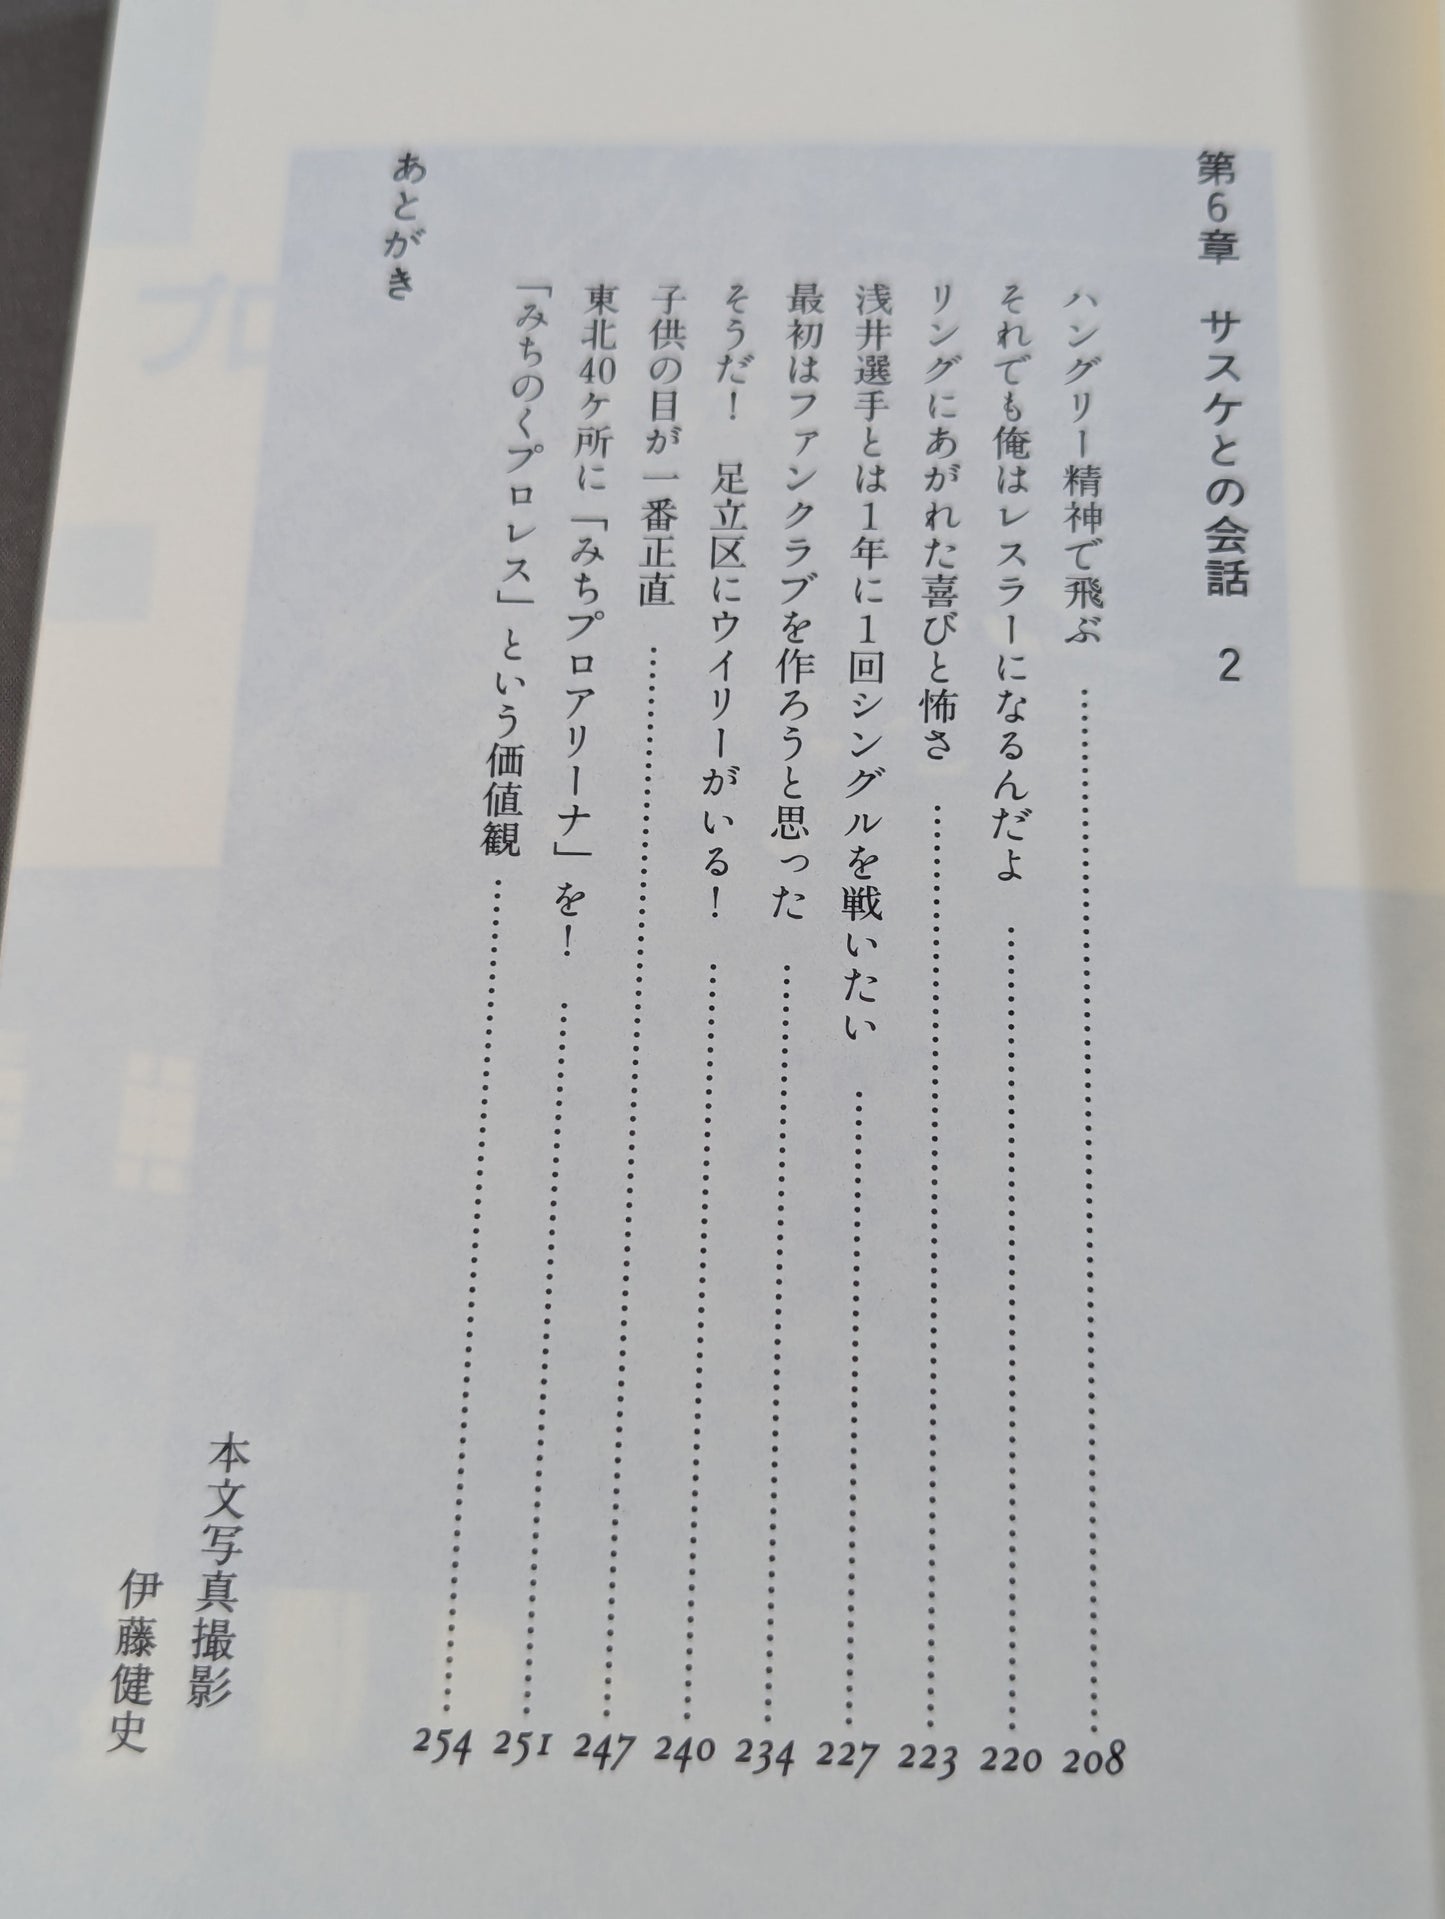 第6章　サスケとの会話　2
ハングリー精神で飛ぶ……208
それでも俺はレスラーになるんだよ……220
リングにあがれた喜びと怖さ……223
浅井選手とは1年に1回シングルを戦いたい……227
最初はファンクラブを作ろうと思った……234
そうだ！　足立区にウイリーがいる！……240
子供の目が一番正直……247
東北40ケ所に「みちプロアリーナ」を！……251
「みちのくプロレス」という価値観……254
あとがき
本文写真撮影
伊藤健史
プロ